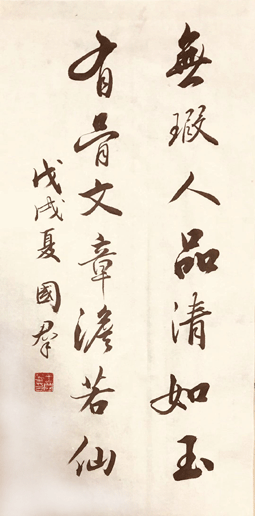 無瑕人品清如玉
有骨文章澹若仙
戊戌夏國群